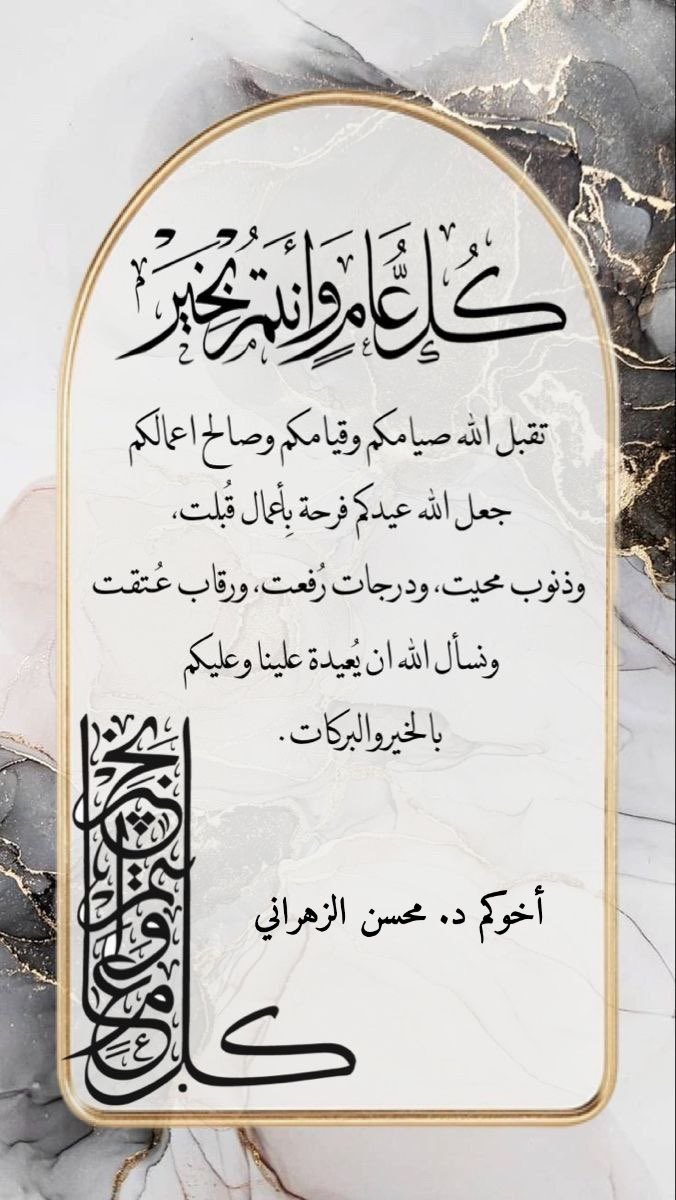 كُلُّ عَامٍ وَأَنتُمْ بِخَيْرٍ
تقبل الله صيامكم وقيامكم وصالح اعمالكم
جعل الله عيدكم فرحة بِأعمال قُبلت،
وذنوب محيت، ودرجات رُفعت، ورقاب عُتقت
ونسأل الله ان يُعيدة علينا وعليكم
بالخير والبركات.
أخوكم د. محسن الزهراني
كل عام وأنتم بخير